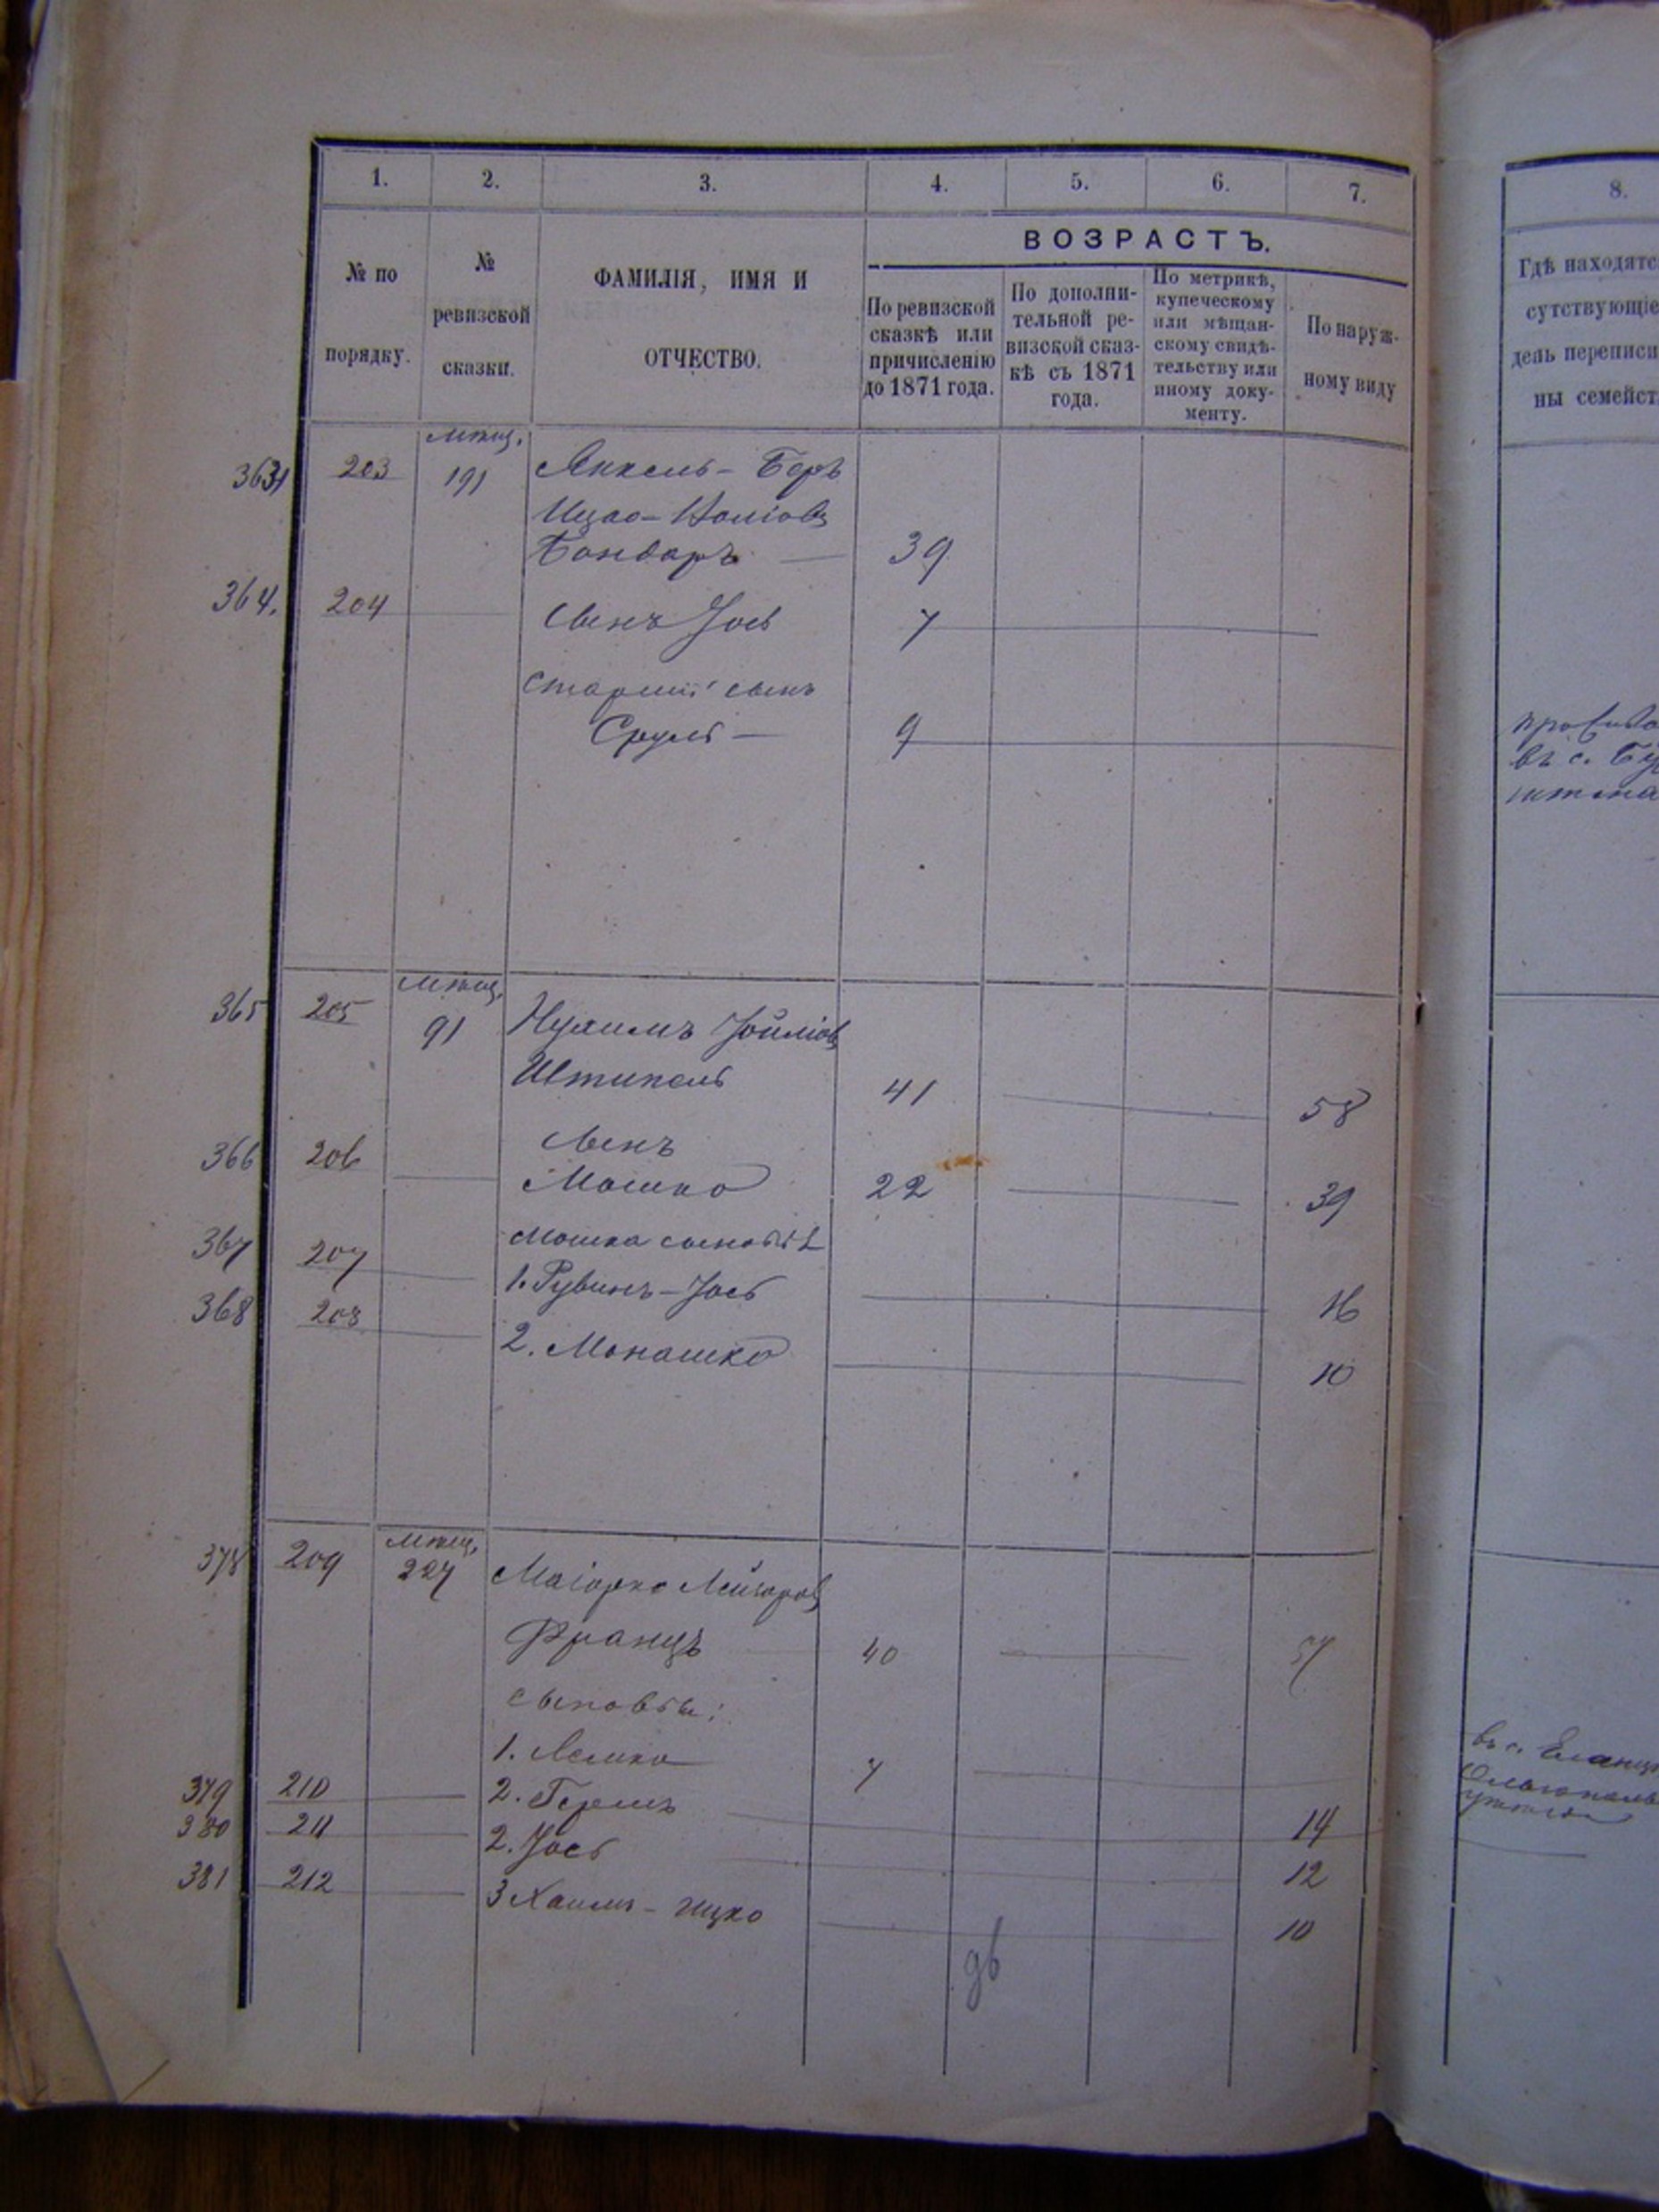 1. 2. 3. 4. 5. 6. 7.
№ по порядку.
№ ревизской сказки.
ФАМИЛІЯ, ИМЯ И ОТЧЕСТВО.
ВОЗРАСТЪ.
По ревизской
сказкѣ или
причисленію
до 1871 года.
По дополни-
тельной ре-
визской сказ-
кѣ съ 1871
года.
По метрикѣ,
купеческому
или мѣщан-
скому свидѣ-
тельству или
иному доку-
менту.
По наруж-
ному виду
203 191 Янкель-Беръ
Бондаръ — 39
364. 204 Сынъ Іось 7
Старшій сынъ
Сруль — 9
365 205 91 Нухимъ Іойліовъ
Штипель 41 58
366 206 Сынъ
Мошко 22 39
367 207 Мошка сыновья
1. Рувинъ-Іось 16
368 208 2. Монашко 10
378 209 227
Францъ 40 57
сыновья:
1. Лейко 7
379 210 2. Гершъ 14
380 211 2. Іось 12
381 212 3 Хаимъ-Ицко 10
8.
Гдѣ находятс
сутствующіе
день переписи
ны семейст
въ с. Еланц